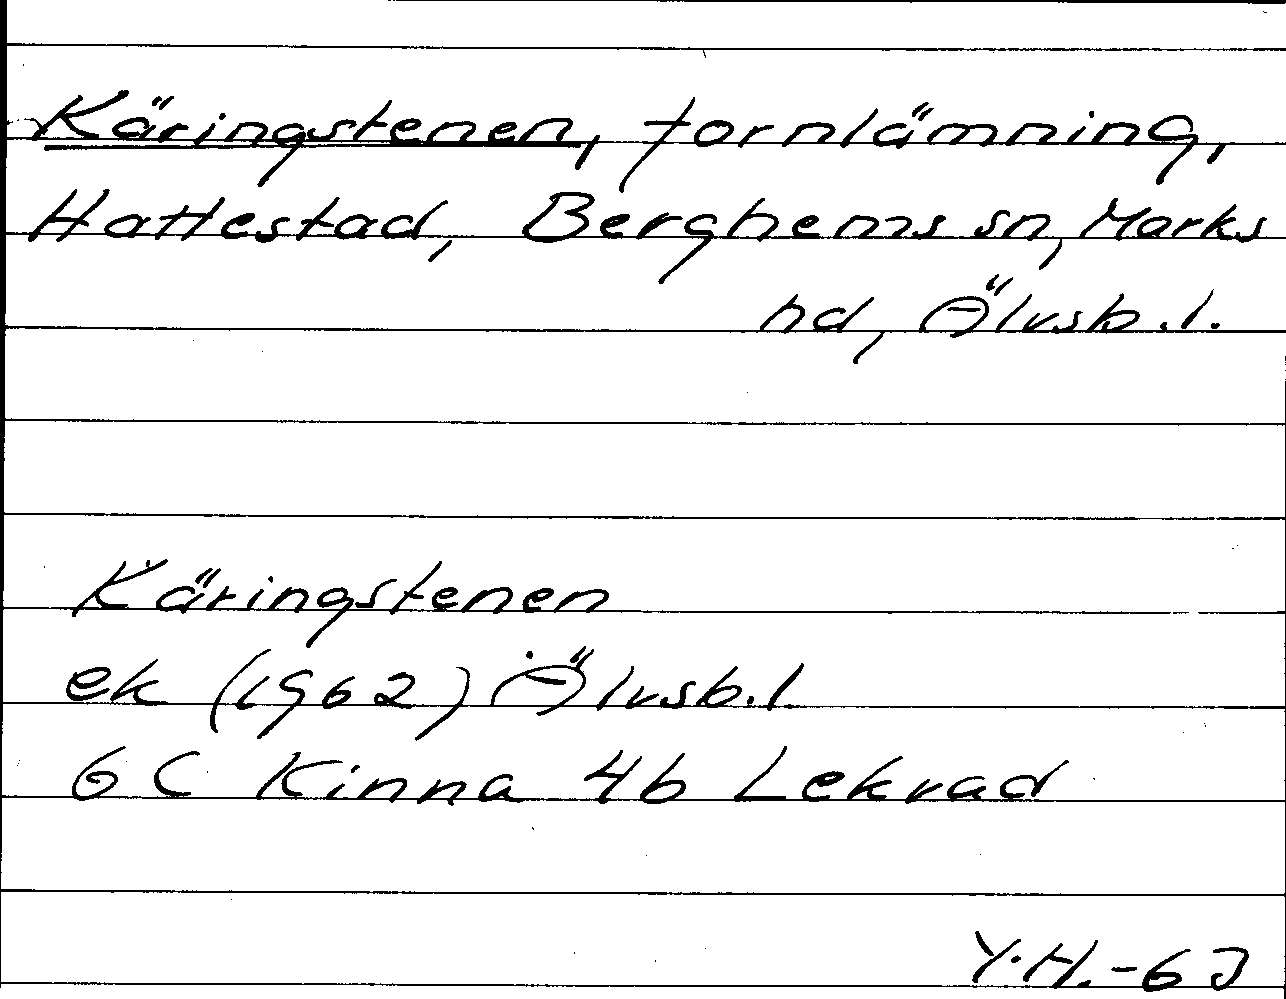 Käringstenen, fornlämning,
Hattestad, Berghems sn, Marks
hd, Älvsb.l.
Käringstenen
ek (1962) Älvsb.l.
6 C Kinna 4b Lekvad
Y.H.-63